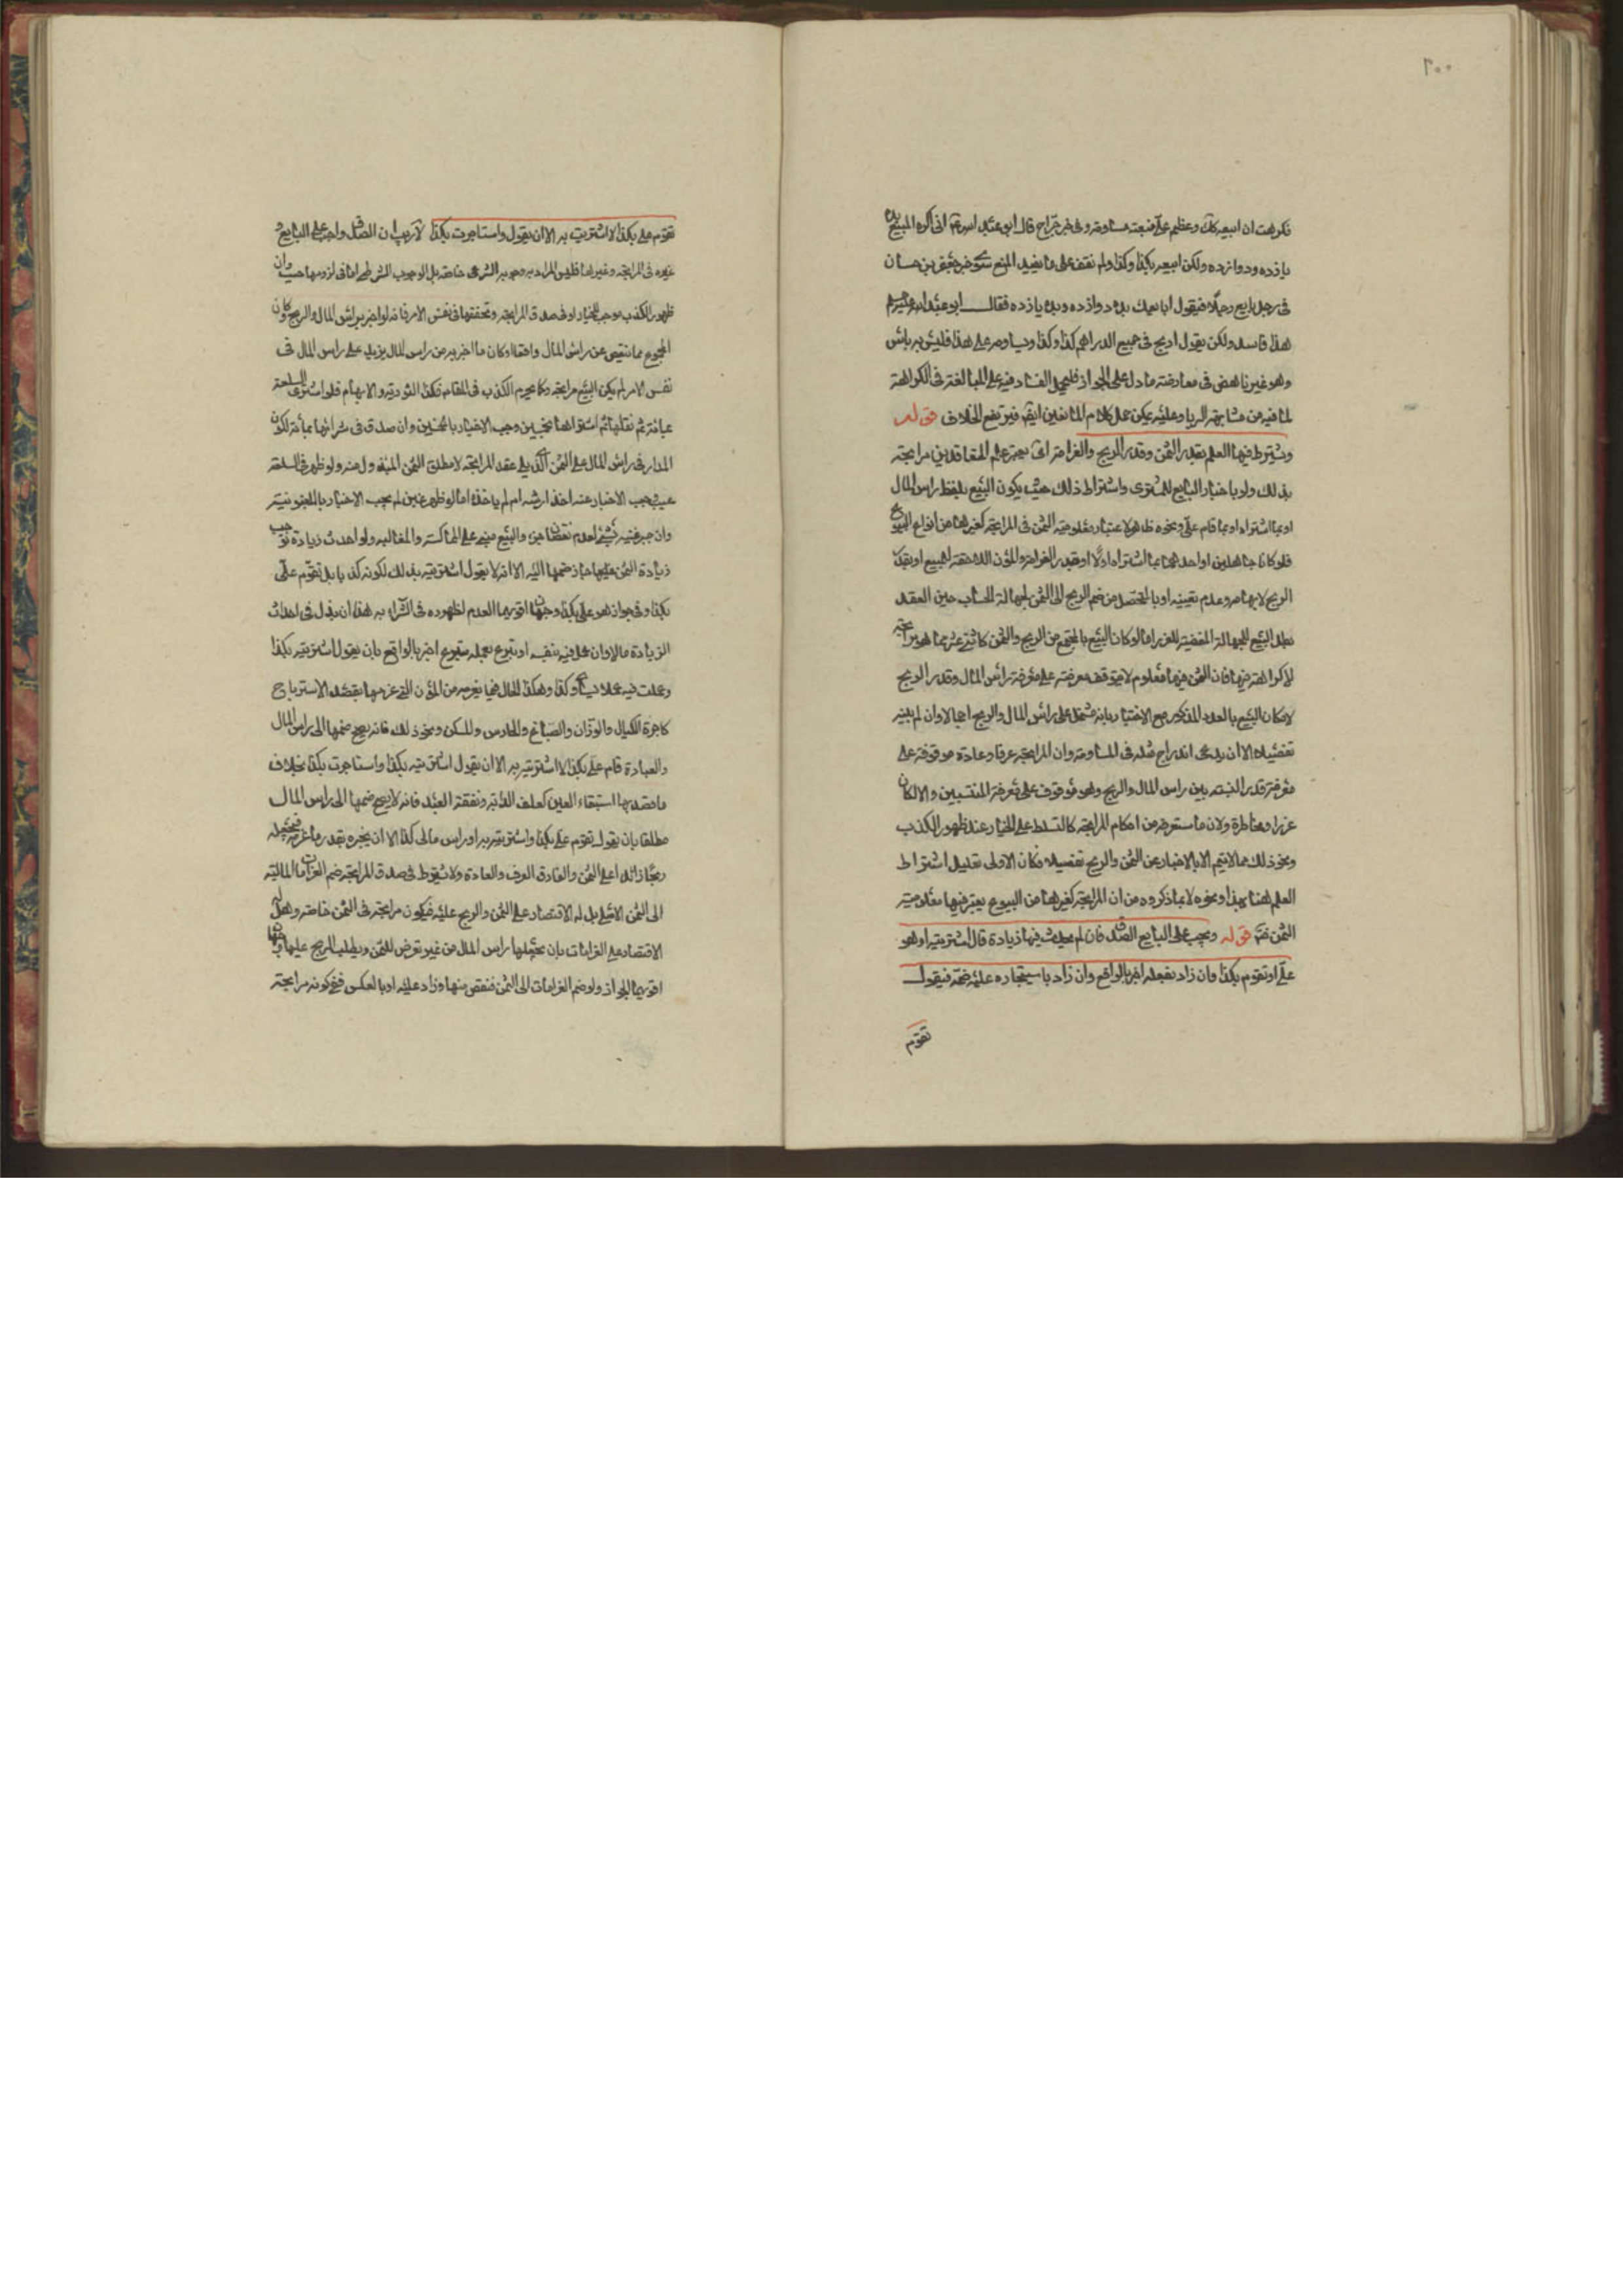 ٢٠٠
فكرهت ان ابيعه كك وعظم على فبعته مساومة وفى خبر جراح قال ابو عبد الله انى اكره البيع بده
يازده ودوازده ولكن ابيعه بكذا وكذا ولم نقف على ما يفيد المنع سوى خبر حنان
فى رجل يبايع رجلا فيقول ابايعك بده دوازده وبده يازده فقال ابو عبد الله
هذا فاسد ولكن يقول اربح فى جميع الدراهم كذا وكذا ويساومه على هذا فليس به باس
وهو غير ناهض فى معارضة ما دل على الجواز فليحمل الفساد فيه على المبالغة فى الكراهة
لما فيه من مشابهة الربا وعليه يمكن حمل كلام المانعين ايضا فيرتفع الخلاف قوله
ويشترط فيها العلم بقدر الثمن وقدر الربح والغرامة اى يعتبر علم المتعاقدين مرابحة
بذلك ولو باخبار البايع للمشترى واشتراط ذلك حيث يكون البيع بلفظ راس المال
او بما اشتراه او بما قام على ونحوه ظاهر لاعتبار معلومية الثمن فى المرابحة كغيرها من انواع البيوع
فلو كانا جاهلين او احدهما بما اشتراه اولا او بقدر الغرامة والمؤن اللاحقة للمبيع او بقدر
الربح لابهامه وعدم تعيينه او بالمتحصل من ضم الربح الى الثمن لجهالة الحساب حين العقد
بطل البيع للجهالة المفضية للغرر اما لو كان البيع بالمجتمع من الربح والثمن كاثنى عشر مما هو مرابحة
لا كراهة فيها فان الثمن فيها معلوم لا يتوقف معرفته على معرفة راس المال وقدر الربح
لامكان البيع بالعدد المذكور مع الاخبار بانه مشتمل على راس المال والربح اجمالا وان لم يبين
تفصيله الا ان يدعى اندراج مثله فى المساومة وان المرابحة عرفا وعادة موقوفة على
معرفة قدر النسبة بين راس المال والربح وهو موقوف على معرفة المنتسبين والا لكان
غررا ومخاطرة ولان ما ستعرفه من احكام المرابحة كالتسلط على الخيار عند ظهور الكذب
ونحو ذلك مما لا يتم الا بالاخبار عن الثمن والربح تفصيلا فكان الاولى تعليل اشتراط
العلم هنا بهذا ونحوه لا بما ذكروه من ان المرابحة كغيرها من البيوع يعتبر فيها معلومية
الثمن قوله ويجب على البايع الصدق فان لم يحدث فيها زيادة قال اشتريته او هو
على او تقوم بكذا وان زاد بفعله اخبر بالواقع وان زاد باستيجاره عليه ضمه فيقول
تقوم
تقوم على بكذا لا اشتريت به الا ان يقول واستاجرت بكذا لا ريب ان الصدق واجب على البايع و
غيره فى المرابحة وغيرها فليس المراد به وجوبه الشرعى خاصة بل الوجوب الشرطى اما فى لزومها حيث ان
ظهور الكذب موجب للخيار او فى صدق المرابحة وتحققها فى نفس الامر فانه لو اخبر براس المال والربح وكان
المجموع مما ينقص عن راس المال واقعا او كان ما اخبر به من راس المال يزيد على راس المال فى
نفس الامر لم يكن البيع مرابحة وكما يحرم الكذب فى المقام فكذا التورية والابهام فلو اشترى السلعة
بمائة ثم نقلها ثم اشتراها بخمسين وجب الاخبار بالخمسين وان صدق فى شرائها بمائة لكون
المدار فى راس المال على الثمن الذى يلى عقد المرابحة لا مطلق الثمن المبذول منه ولو ظهر فى السلعة
عيب وجب الاخبار عنه اخذ ارشه ام لم ياخذه اما لو ظهر غبن لم يجب الاخبار بالمغبونية
وان جبر غبنه بشئ لعدم نقص العين والبيع مبنى على المماكسة والمغالبة ولو احدث زيادة توجب
زيادة الثمن عليها جاز ضمها اليه الا انه لا يقول اشتريته بذلك لكونه كذبا بل تقوم على
بكذا وفى جواز هو على بكذا وجهان اقويهما العدم لظهوره فى الشراء به هذا ان بذل فى احداث
الزيادة مالا وان عمل فيه بنفسه او تبرع بعمله متبرع اخبر بالواقع بان يقول اشتريته بكذا
وعملت فيه عملا يساوى كذا وهكذا الحال فيما يغرمه من المؤن التى غرمها بقصد الاسترباح
كاجرة الكيال والوزان والصباغ والحارس والمسكن ونحو ذلك فانه يصح ضمها الى راس المال
والعبارة قام على بكذا لا اشتريته به الا ان يقول اشتريته بكذا واستاجرت بكذا بخلاف
ما قصد بها استبقاء العين كعلف الدابة ونفقة العبد فانه لا يصح ضمها الى راس المال
مطلقا بان يقول تقوم على بكذا واشتريته به او راس مالى كذا الا ان يخبره بقدر ما غرمه فيجعله
ربحا زائدا على الثمن والفارق العرف والعادة ولا يشترط فى صدق المرابحة ضم الغرامات المالية
الى الثمن الاصلى بل له الاقتصار على الثمن والربح عليه فيكون مرابحة فى الثمن خاصة وهل له
الاقتصار على الغرامات بان يجعلها راس المال من غير تعرض للثمن ويطلب الربح عليها وجهان
اقويهما الجواز ولو ضم الغرامات الى الثمن فنقص منها وزاد عليه او بالعكس ففى كونه مرابحة